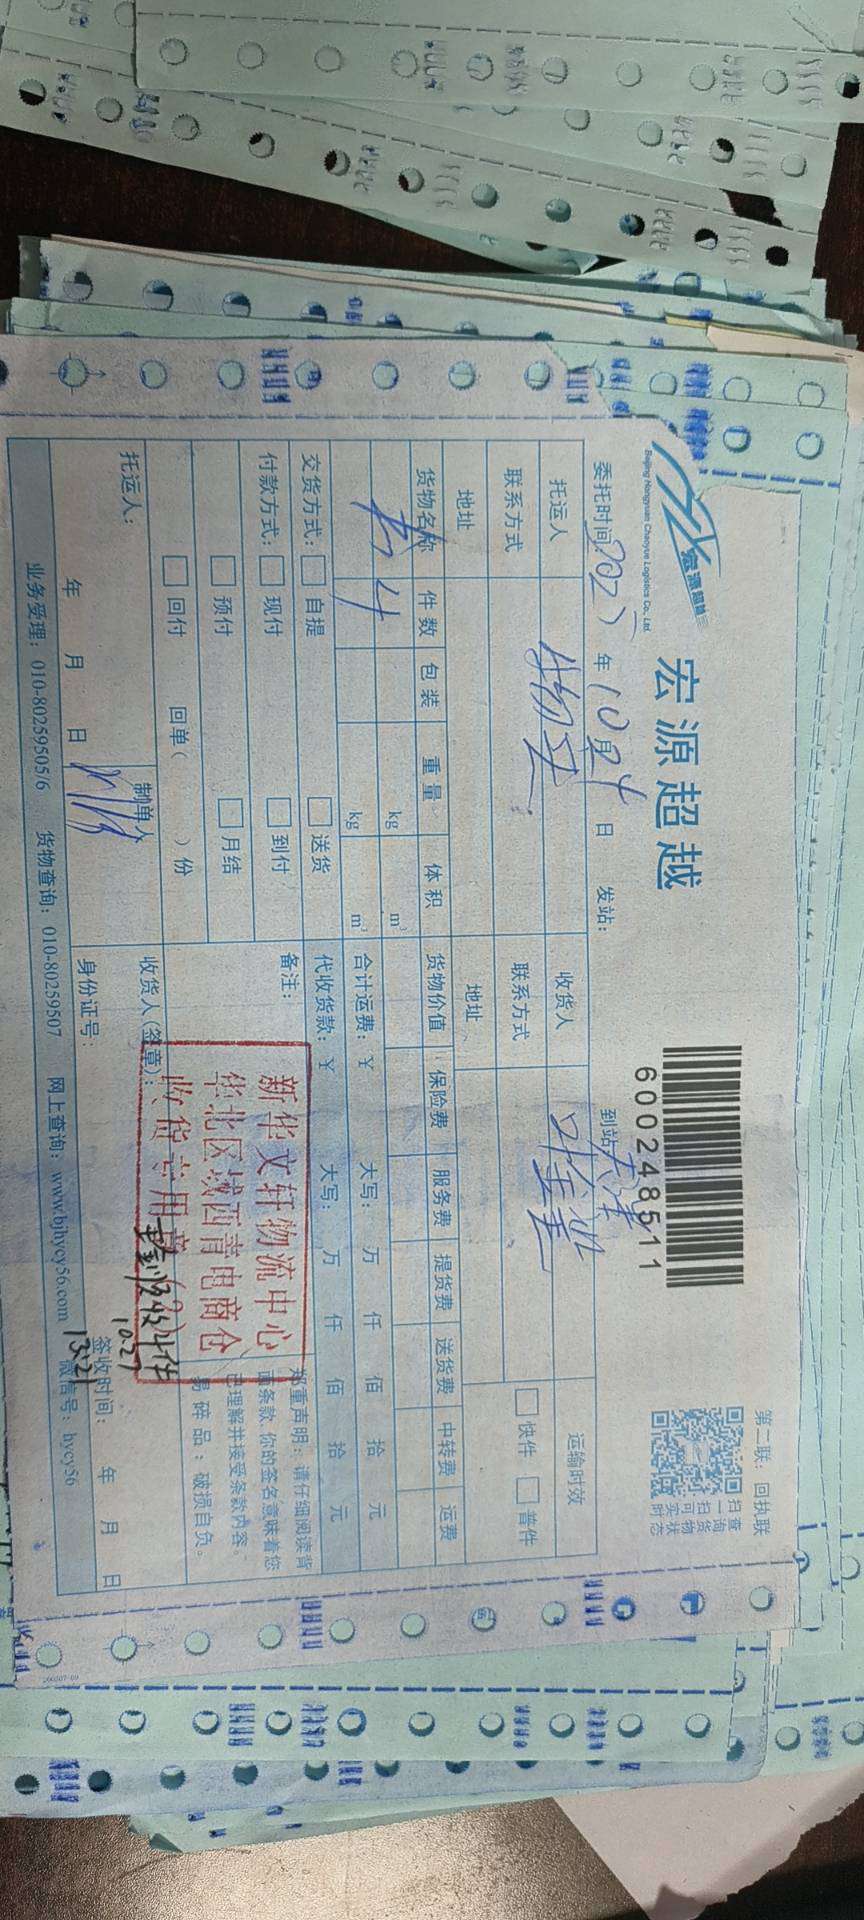 宏源超越
Beijing Hongyuan Chaoyue Logistics Co., Ltd
宏源超越
600248511
第二联：回执联
扫一扫可实时
查询货物状态
委托时间：202 年10月24日 发站： 到站：天津
托运人 收货人 运输时效
联系方式 联系方式 快件 普件
地址 地址
货物名称 件数 包装 重量 体积 货物价值 保险费 服务费 提货费 送货费 中转费 运费
kg m³
书 4
kg m³
合计运费：¥ 大写： 万 仟 佰 拾 元
交货方式： 自提 送货 代收货款：¥ 大写： 万 仟 佰 拾 元
付款方式： 现付 到付 备注：
预付 月结
回付 回单（ ）份
郑重声明：请仔细阅读背
面条款，你的签名意味着您
已理解并接受条款内容。
易碎品：破损自负。
新华文轩物流中心
华北区域西青电商仓
收货专用章(2)
托运人： 制单人 收货人(签章)：
实收4件
10.27
13:21
年 月 日 身份证号： 签收时间： 年 月 日
业务受理：010-80259505/6 货物查询：010-80259507 网上查询：www.bjhycy56.com 微信号：hycy56